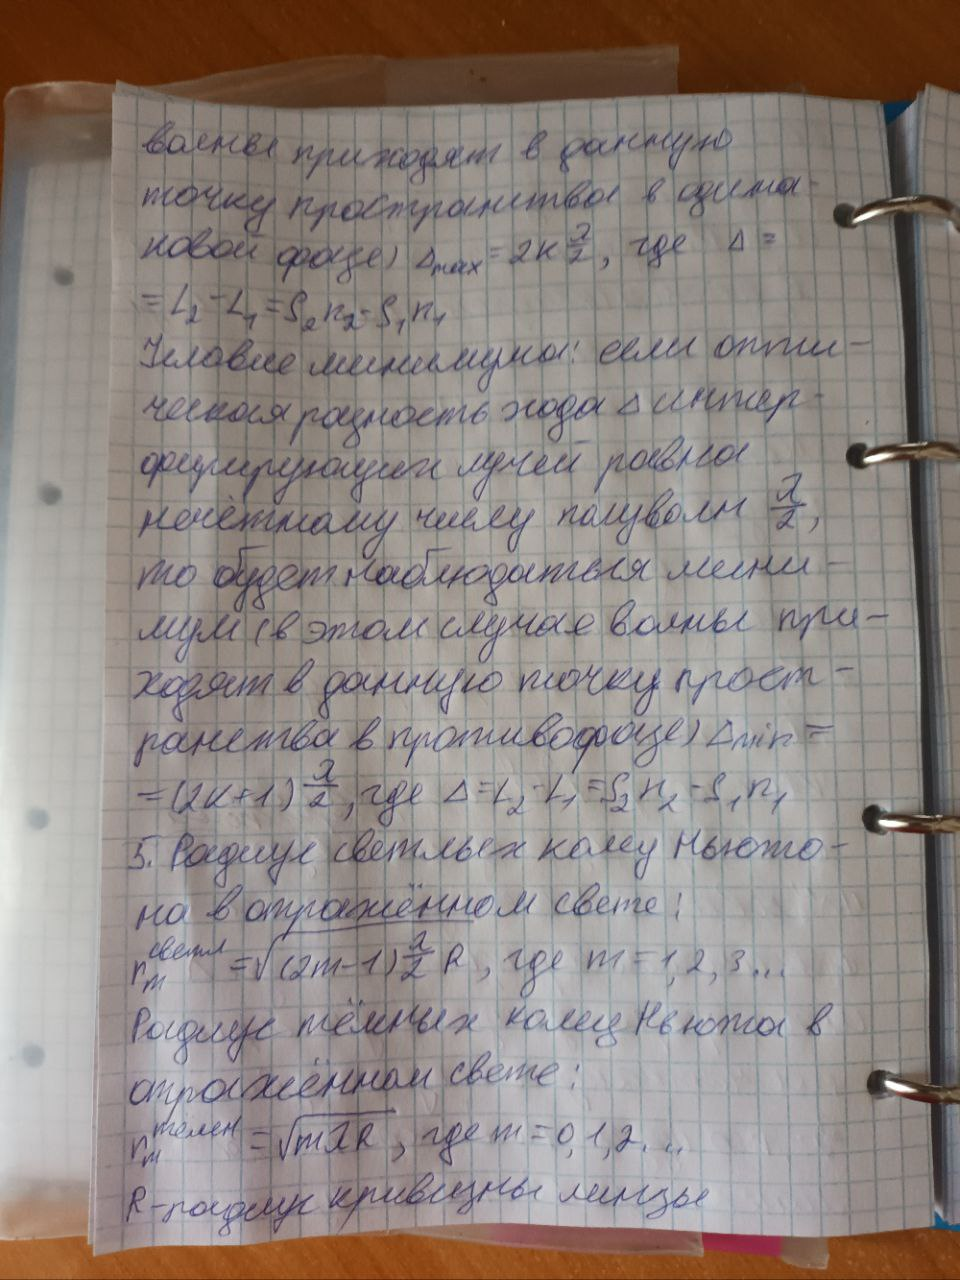 волны приходят в данную
точку пространства в одина-
ковой фазе) Δmax = 2к λ/2, где Δ =
= L₂ - L₁ = S₂n₂ - S₁n₁
Условие минимума: если опти-
ческая разность хода Δ интер-
ферирующих лучей равна
нечётному числу полуволн λ/2,
то будет наблюдаться мини-
мум (в этом случае волны при-
ходят в данную точку прост-
ранства в противофазе) Δmin =
= (2к+1) λ/2, где Δ = L₂ - L₁ = S₂n₂ - S₁n₁
5. Радиус светлых колец Ньюто-
на в отражённом свете:
rₘ^светл = √((2m-1) λ/2 R), где m = 1, 2, 3...
Радиус тёмных колец Ньюта в
отражённом свете:
rₘ^темн = √(mλR), где m = 0, 1, 2...
R - радиус кривизны линзы